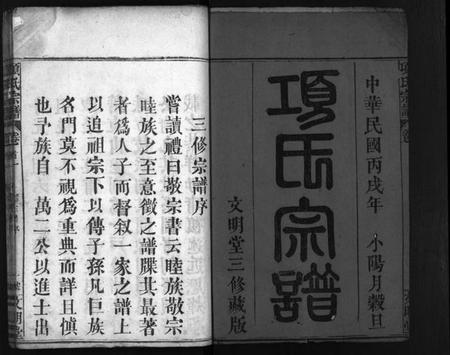 中華民國丙戌年　小陽月穀旦
項氏宗譜
文明堂三修藏版
三修宗譜序
嘗讀禮曰敬宗書云睦族敬宗
睦族之至意徵之譜牒其最著
者爲人子而督叙一家之譜上
以追祖宗下以傳子孫凡巨族
名門莫不視爲重典而詳且慎
也予族自　萬二公以進士出
項氏宗譜
卷